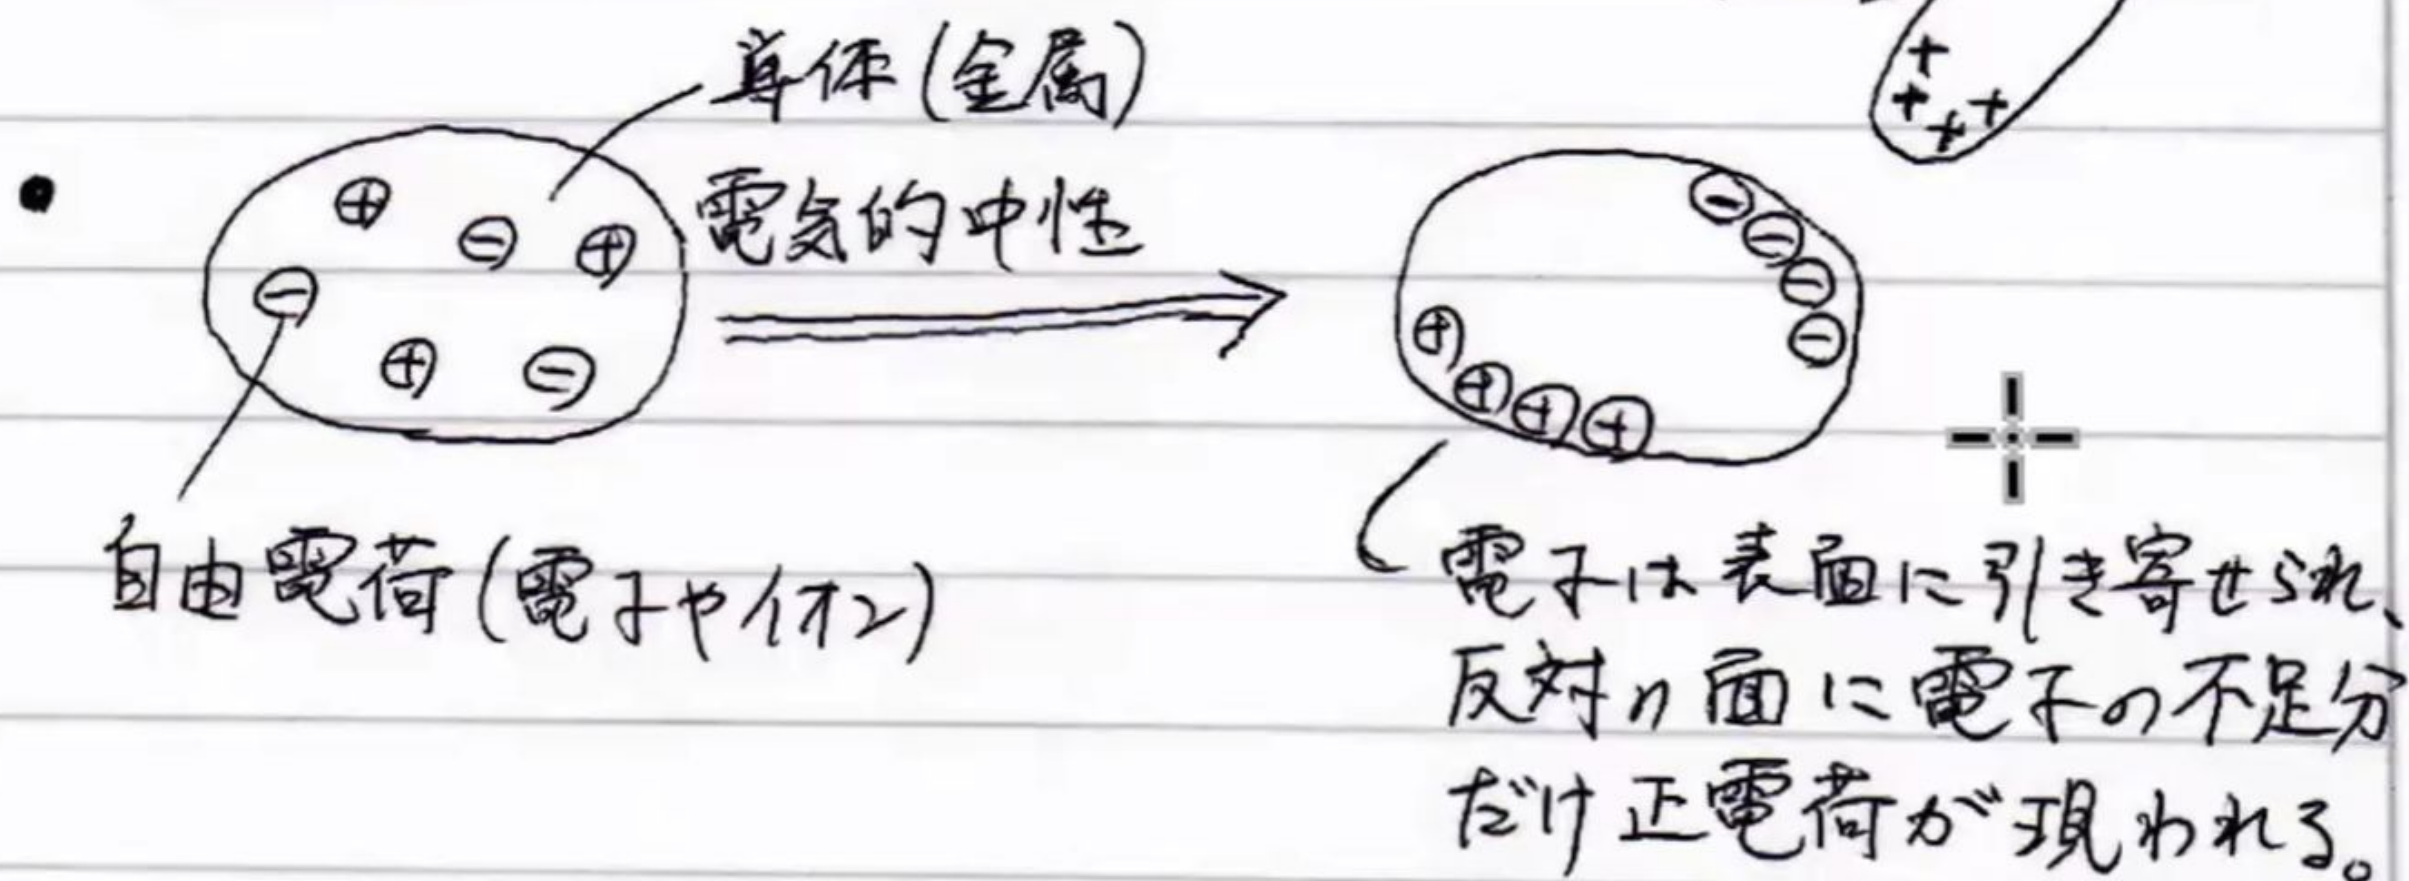 導体(金属)
電気的中性
自由電荷(電子やイオン)
電子は表面に引き寄せられ、
反対の面に電子の不足分
だけ正電荷が現われる。